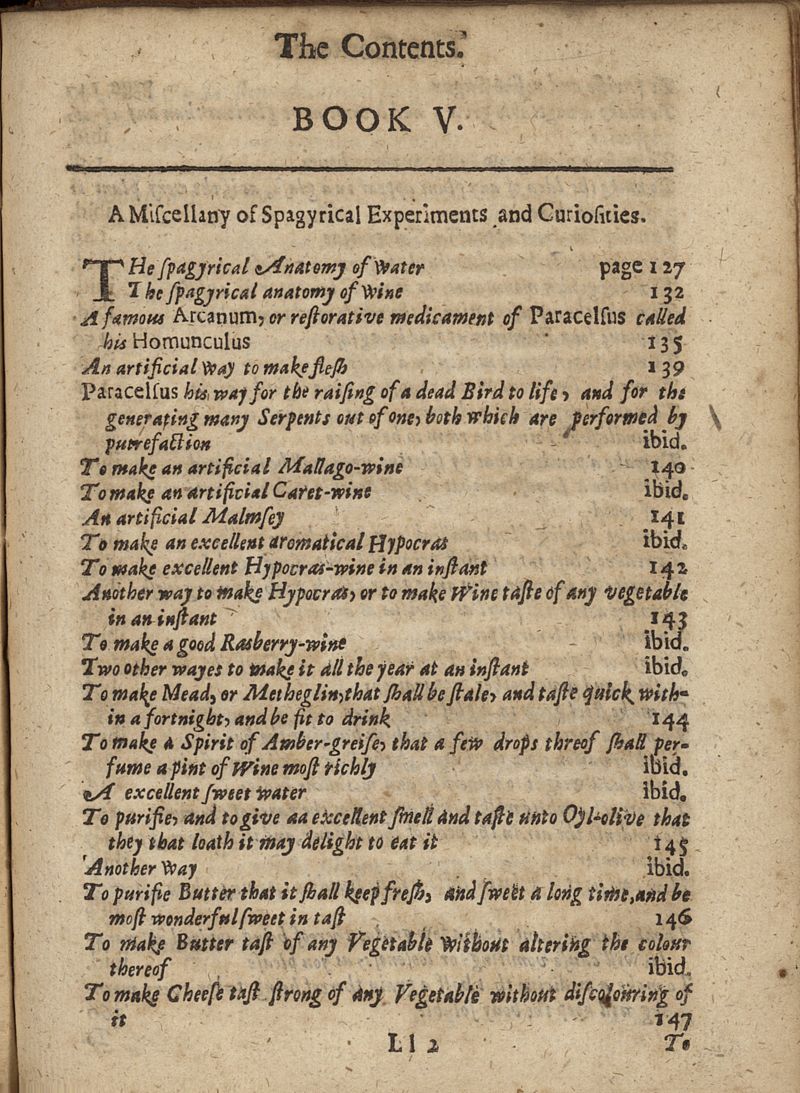 The Contents.
BOOK V.
A Miſcellany of Spagyrical Experiments and Curioſities.
THe ſpagyrical Anatomy of Water page 127
The ſpagyrical anatomy of Wine 132
A famous Arcanum, or reſtorative medicament of Paracelſus called
his Homunculus 135
An artificial way to make fleſh 139
Paracelſus his way for the raiſing of a dead Bird to life, and for the
generating many Serpents out of one, both which are performed by
putrefaction ibid.
To make an artificial Mallago-wine 140
To make an artificial Caret-wine ibid.
An artificial Malmſey 141
To make an excellent aromatical Hypocras ibid.
To make excellent Hypocras-wine in an inſtant 142
Another way to make Hypocras, or to make Wine taſte of any vegetable
in an inſtant 143
To make a good Rasberry-wine ibid.
Two other wayes to make it all the year at an inſtant ibid.
To make Mead, or Metheglin, that ſhall be ſtale, and taſte quick with-
in a fortnight, and be fit to drink 144
To make a Spirit of Amber-greiſe, that a few drops threof ſhall per-
fume a pint of Wine moſt richly ibid.
A excellent ſweet water ibid.
To purifie, and to give aa excellent ſmell and taſte unto Oyl-olive that
they that loath it may delight to eat it 145
Another Way ibid.
To purifie Butter that it ſhall keep freſh, and ſweet a long time, and be
moſt wonderful ſweet in taſt 146
To make Butter taſt of any Vegetable without altering the colour
thereof ibid.
To make Cheeſe taſt ſtrong of any Vegetable without diſcolouring of
it 147
Ll 2 To